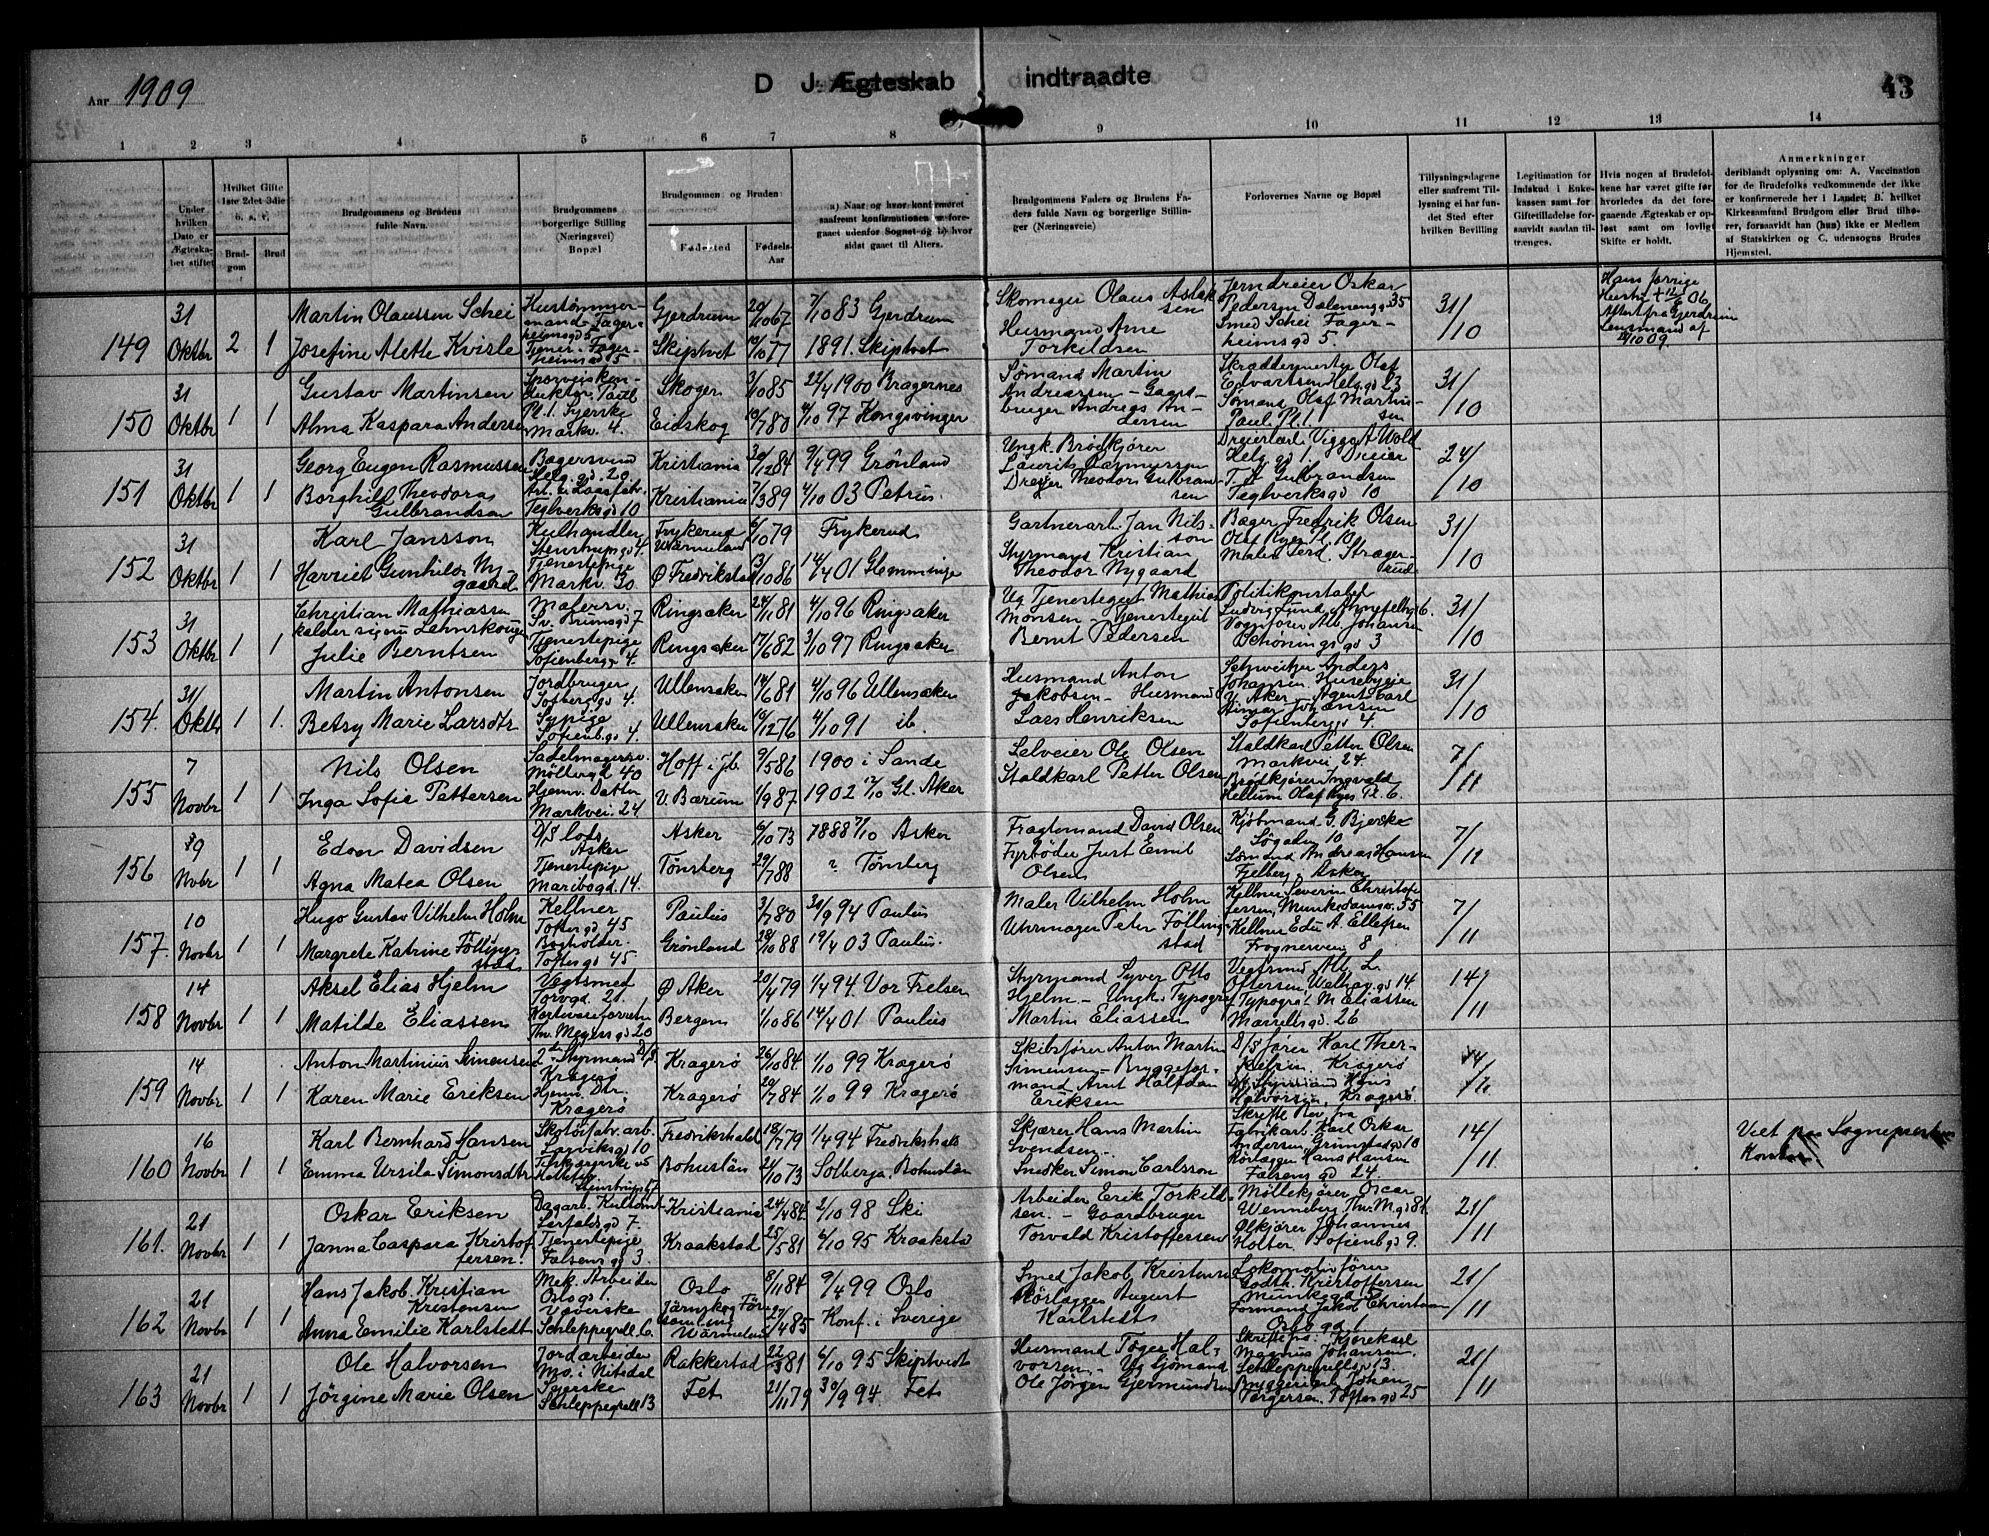 Aar 1909
D J. Ægteskab indtraadte
43
1 2 3 4 5 6 7 8 9 10 11 12 13 14
Under hvilken Dato er Ægteska- bet stiftet
Hvilket Gifte 1ste 2det 3die
Brud- gom
Brud
Brudgommens og Brudens fulde Navn.
Brudgommens borgerlige Stilling (Næringsvei) Bopæl
Brudgommens og Brudens
Fødested
Fødsels- Aar
a) Naar og hvor konfirmeret saafremt konfirmationen er fore- gaaet udenfor Sognet og b) hvor sidst gaaet til Alters.
Brudgommens Faders og Brudens Fa- ders fulde Navn og borgerlige Stillin- ger (Næringsveie)
Forlovernes Navne og Bopæl
Tillysningsdagene eller saafremt Til- lysning ei har fun- det Sted efter hvilken Bevilling
Legitimation for Indskud i Enke- kassen samt for Giftetilladelse for- saavidt saadan til- trænges.
Hvis nogen af Brudefol- kene har været gifte før hvorledes da det fore- gaaende Ægteskab er op- løst samt om lovligt Skifte er holdt.
Anmerkninger
deriblandt oplysning om: A. Vaccination for de Brudefolks vedkommende der ikke er konfirmerede her i Landet; B. hvilket Kirkesamfund Brudgom eller Brud tilhø- rer, forsaavidt han (hun) ikke er Medlem af Statskirken og C. udensogns Brudes Hjemsted.
149 31 Oktbr 2 1 Martin Olaussen Schei Gjerdrum 20/10 67 7/10 83 Gjerdrum
Josefine Alette Kvisle Skiptvet 10/10 77 1891. Skiptvet
Skomager Olaus Aslaksen Husmand Arne Torkildsen
Jerndreier Oskar Pedersen Dælenengg 35 Smed Schei Fagerheimsgd 5.
31/10
150 31 Oktbr 1 1 Gustav Martinsen Skoger 3/10 85 22/4 1900 Bragernes
Alma Kaspara Andersen Markv. 4. Eidskog 10/7 80 4/10 97 Kongsvinger
Sømand Martin Andreassen - Gaardbruger Andreas Andersen
Skræddermester Olaf Edvartsen Helg. gd 23 Sømand Olaf Martinsen Paul. Pl. 1.
31/10
151 31 Oktbr 1 1 Georg Eugen Rasmussen Bagersvend Helg. gd. 20 Kristiania 30/12 84 9/4 99 Grønland
Borghild Theodora Gulbrandsen Teglverksgd 10 Kristiania 7/3 89 4/10 03 Petrus.
Ungk. Brødkjører Laurits Rasmussen Dreyer Theodor Gulbrandsen
Dreierlærl. Viggo A Wold Helg gd 1. Dreier T. A Gulbrandsen Teglverksgd 10
24/10
152 31 Oktbr 1 1 Karl Jansson Kulhandler Stenstrupsgd 4. Frykerud Wærmeland 6/10 79 Frykerud
Harriet Gunhilda Nygaard Tjenestepige Markv. 30. Ø Fredrikstad 13/10 86 14/4 01 Glemminge
Gartnerarb. Jan Nilsson Styrmand Kristian Theodor Nygaard
Bager Fredrik Olsen Olaf Ryes Pl. 10 Maler Ferd. Strager-
31/10
153 31 Oktbr 1 1 Christian Mathiassen kalder sig nu Lehnskouge Malersv. Sv. Brunsgd 7 Ringsaker 24/1 81 4/10 96 Ringsaker
Julie Berntsen Tjenestepige Sofienbergg 4. Ringsaker 17/6 82 3/10 97 Ringsaker
Ug Tjenestegut Mathias Monsen - Tjenestegut Bernt Pedersen
Politikonstabel Ludvig Lund, 6. Vognfører Alb. Johansen Schøningsgd 3
31/10
154. 31/ Oktbr 1 1. Martin Antonsen Jordbruger Sofbergg. 4. Ullensaker 14/6 81 4/10 96 Ullensaker
Betsy Marie Larsdtr Sypige Sofienbgd 4. Ullensaker 10/12 76 4/10 91 ib.
Husmand Anton Jakobsen - Husmand Lars Henriksen
Schweitzer Anders Johansen Husebyeie V. Aker - Agent Carl Johansen Sofienberggd 4.
31/10
155 7 Novbr 1 1 Nils Olsen Sadelmagersv. Møllergd 40 Hoff i Jb. 9/5 86 1900 i Sande
Inga Sofie Pettersen Hjemv. Datter Markvei. 24 V. Bærum 1/9 87 1902 12/10 Gl. Aker
Selveier Ole Olsen Staldkarl Petter Olsen
Staldkarl Petter Olsen Markvei 24. Brødkjører Ingvald Kellum Olaf Ryes Pl. 6.
7/11
156 9 Novbr 1 1 Edon Davidsen D/S Cato Asker Asker 6/10 73 1888 7/10 Asker
Agna Matea Olsen Tjenestepige Maribogd. 14. Tønsberg 29/7 88 ? Tønsberg
Fragtemand David Olsen Fyrbøder Just Emil Olsen
Kjøbmand G. Bjerke Søgaden 10. Sømand Andreas Hansen Fjelberg i Asker
7/11
157. 10 Novbr 1 1 Hugo Gustav Vilhelm Holm Kellner Toftesgd 45 Paulus 3/7 80 30/9 94 Paulus
Margrete Katrine Føllingstad Bogholder. Toftesgd 45 Grønland 28/10 88 19/4 03 Paulus.
Maler Vilhelm Holm Uhrmager Peter Føllingstad
Kellner Severin Christofersen, Munkedamsv. 55 Kellner Edv. A. Ellefsen Frognervei 8
7/11
158 14 Novbr 1 1 Aksel Elias Hjelm Vegtsmed Torvgd. 21. Ø Aker 20/4 79 1/4 94. Vor Frelser
Matilde Eliassen Thv. Meyersgd 20 Bergen 1/10 86 14/4 01 Paulus
Styrmand Syver Otto Hjelm - Ungk. Typograf Martin Eliassen
Vegtsmed Alb. L. Oftersen, Welhav.gd 14 Typograf M Eliassen Marselisgd. 26
14/11
159 14 Novbr 1 1 Anton Martinius Simensen 2den Styrmand D/S Kragerø Kragerø 26/10 84 1/10 99 Kragerø
Karen Marie Eriksen Hjemv. Dtr. Kragerø Kragerø 20/7 84 1/10 99 Kragerø
Skibsfører Anton Martin Simensen - Bryggeformand Arnt Halfdan Eriksen
D/S fører Karl Ther- Kragerø Hans Halvorsen, Kragerø.
14/11
160 16 Novbr 1 1 Karl Bernhard Hansen Skotøifabr. arb. Larviksgd 10 Fredrikshald 18/7 79 1/4 94 Fredrikshald
Emma Ursila Simonsdtr Bohuslän 21/10 73 Solberga. Bohuslän
Skjærer Hans Martin Svendsen. Snedker Simon Carlsson
Skrifte Bev. fra Fabrikarb. Karl Oskar Andersen Grimstadgd 10 Rørlægger Hans Hansen Falsensgd 24.
14/11.
Viet paa Sogneprestens Kontor.
161. 21 Novbr 1 1 Oskar Eriksen Dagarb. Leirfaldsgd 7. Kristiania 24/4 84. 2/10 98 Ski
Janna Caspara Kristoffersen. Tjenestepige Falsensgd 3. Kraakstad 25/5 81 6/10 95 Kraakstad
Arbeider Erik Torkildsen. - Gaardbruger Torvald Kristoffersen
Møllekjører Oscar Wenneberg Thv. M gd 81. Ølkjører Johannes Holter. Sofienbgd 9.
21/11
162 21 Novbr 1 1 Hans Jakob Kristian Kristensen Mek. Arbeider Oslogd 1. Oslo 8/11 84 9/4 99 Oslo
Anna Emilie Karlstedt Væverske Schleppegrell. 6. Wärmeland 27/4 85 Konf. i Sverige
Smed Jakob Kristensen Rørlægger August Karlstedt
Lokomotivfører Godth. Kristoffersen Munkegd 5 Formand Jakob Christian Oslo gd 1
21/11
163 21 Novbr 1 1 Ole Halvorsen Jordarbeider Mo. i Nitedal Rakkestad 22/3 81 6/10 95 Skiptvedt
Jörgine Marie Olsen Syerske Schleppegrell 13 Fet 21/11 79 30/9 94. Fet
Husmand Töger Halvorsen. - Ug Sjömand Ole Jörgen Gjermundsen
Skriftl. fra Kjørekarl Magnus Johansen. Schleppegrellsgd 13. Bryggeriarb. Johan Torgersen. Toftesgd 25
21/11